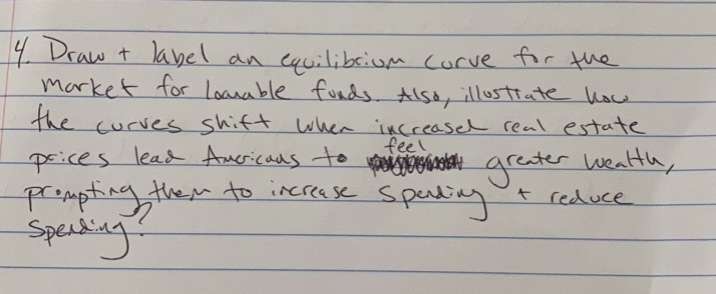 4. Draw + label an equilibrium curve for the
market for loanable funds. Also, illustrate how
the curves shift when increased real estate
feel
prices lead Americans to greater wealth,
prompting them to increase spending + reduce
spending?